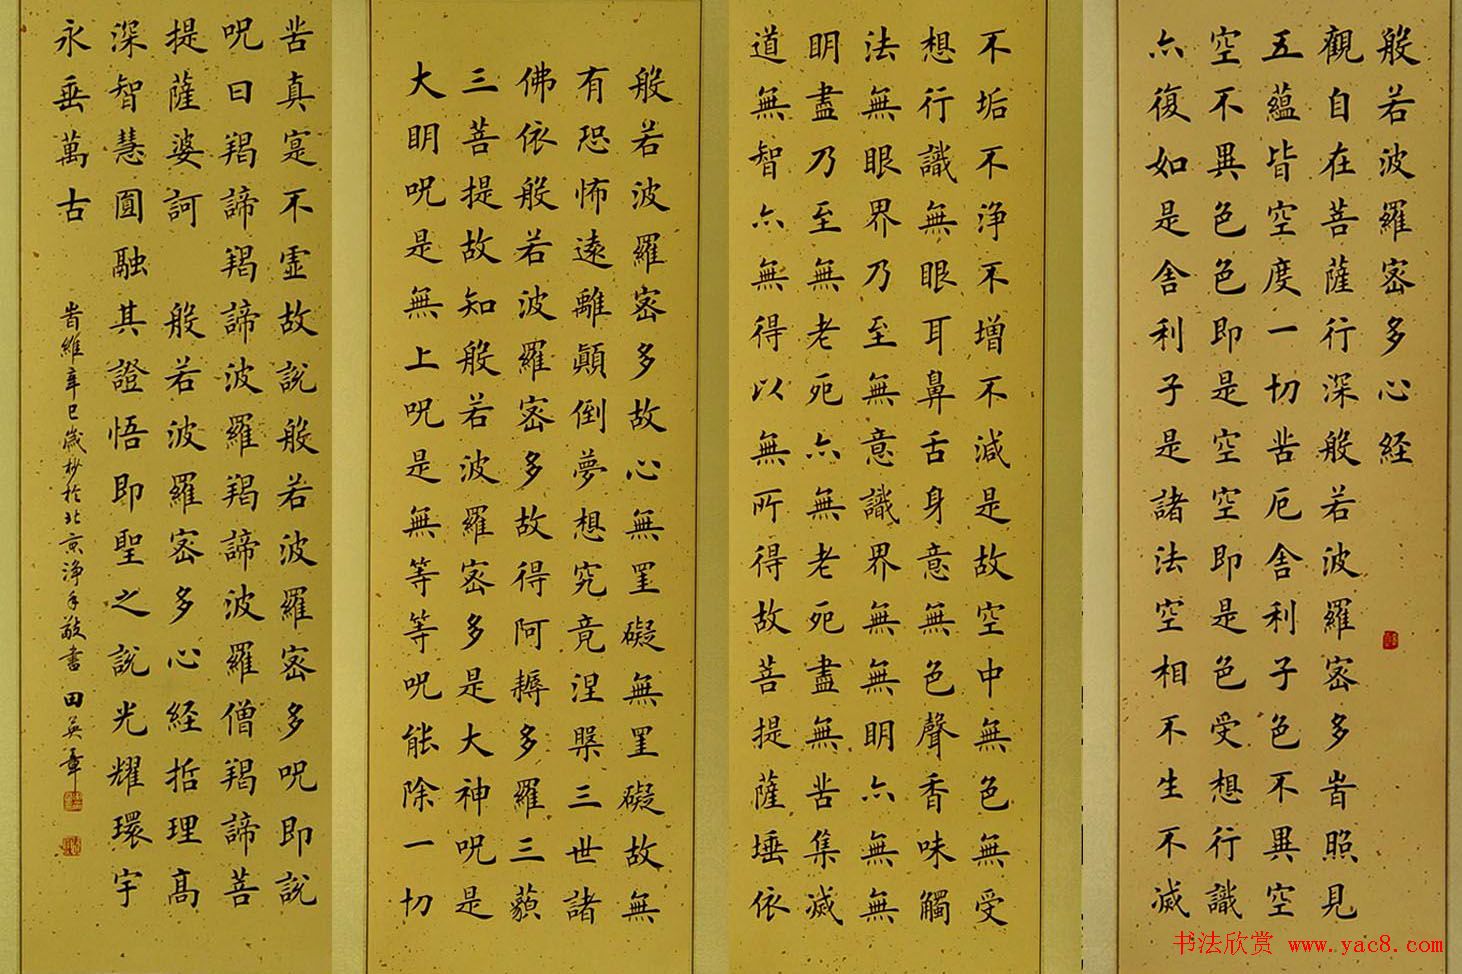 般若波羅密多心経
觀自在菩薩行深般若波羅密多旹照見
五蘊皆空度一切苦厄舎利子色不異空
空不異色色即是空空即是色受想行識
亦復如是舎利子是諸法空相不生不滅
不垢不浄不增不減是故空中無色無受
想行識無眼耳鼻舌身意無色聲香味觸
法無眼界乃至無意識界無無明亦無無
明盡乃至無老死亦無老死盡無苦集滅
道無智亦無得以無所得故菩提薩埵依
般若波羅密多故心無罣礙無罣礙故無
有恐怖遠離顛倒夢想究竟涅槃三世諸
佛依般若波羅密多故得阿耨多羅三藐
三菩提故知般若波羅密多是大神呪是
大明呪是無上呪是無等等呪能除一切
苦真寔不虚故說般若波羅密多呪即說
呪曰羯諦羯諦波羅羯諦波羅僧羯諦菩
提薩婆訶 般若波羅密多心経哲理高
深智慧圓融其證悟即聖之說光耀環宇
永垂萬古
旹維辛巳歲杪於北京浄手敬書 田英章
书法欣赏 www.yac8.com